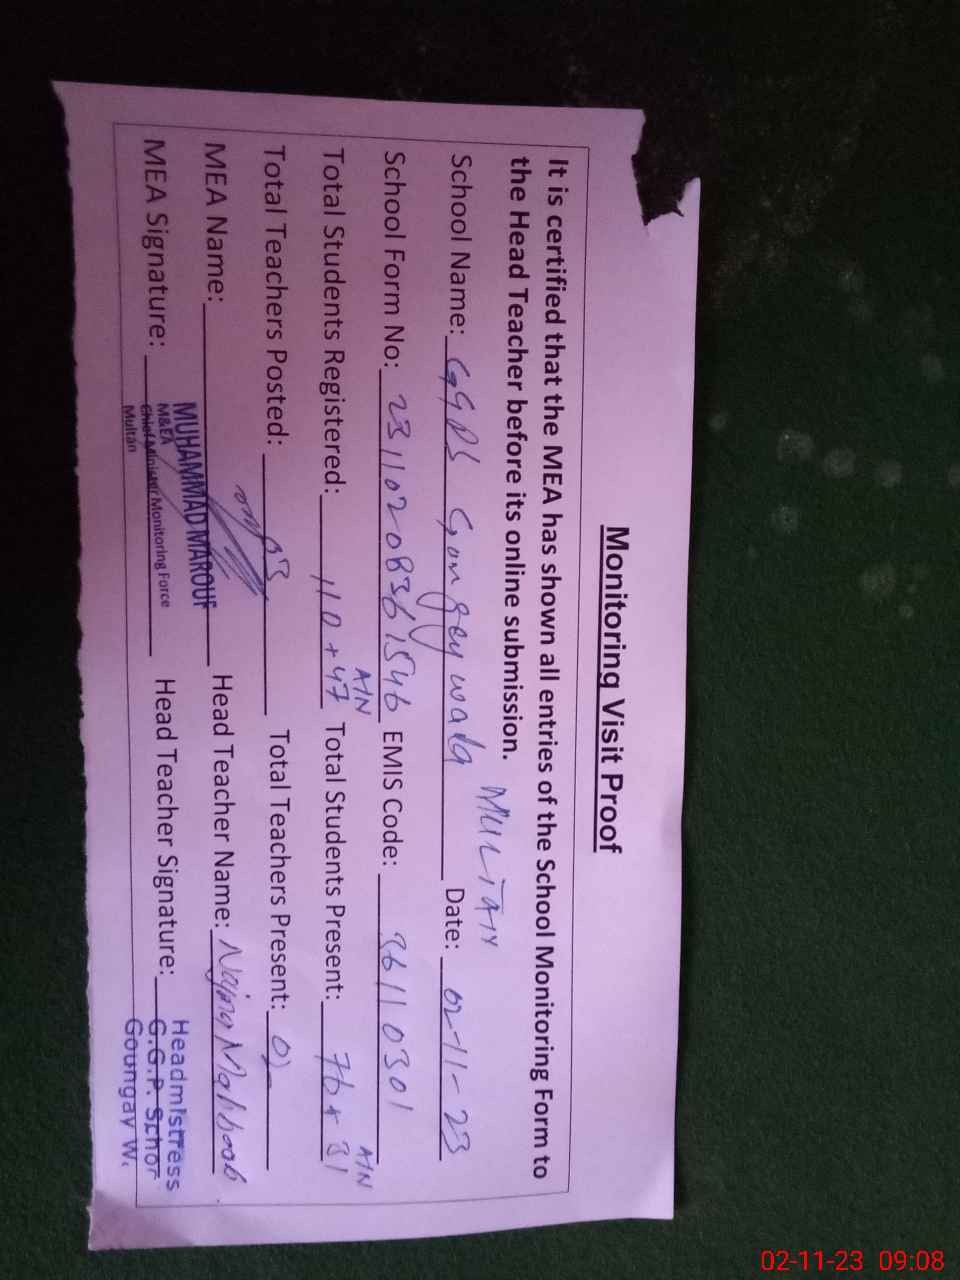 Monitoring Visit Proof
It is certified that the MEA has shown all entries of the School Monitoring Form to
the Head Teacher before its online submission.
MULTAN
School Name: GGPS Gongeywala Date: 02-11-23
School Form No: 23110208361546 EMIS Code: 36110301
A/N A/N
Total Students Registered: 110+47 Total Students Present: 76+31
Total Teachers Posted: 03 Total Teachers Present: 02
MEA Name: Head Teacher Name: Najma Mahboob
MUHAMMAD MAROUF
MEA Signature: Head Teacher Signature:
M&EA
Chief Minister Monitoring Force
Multan
Headmistress
G.G.P. School
Goungay W.
02-11-23 09:08